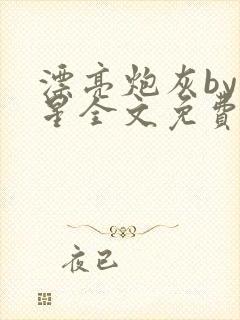 漂亮炮灰by
星全文免費
夜已